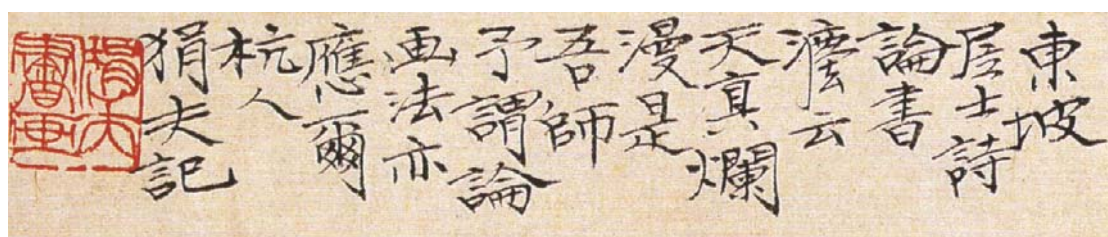 東坡
居士詩
論書
灋云
天真爛
漫是
吾師
予謂論
画法亦
應爾
杭人
狷夫記
狷夫
書画